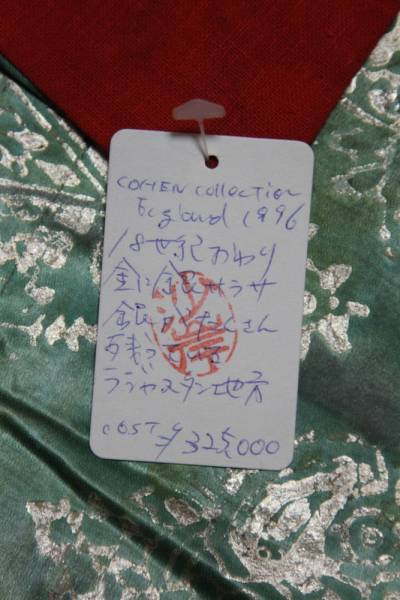 COHEN collection
England 1996
18世紀おわり
金に金銀サラサ
銀がたくさん
残っている
ラジャスタン地方
COST ¥325,000